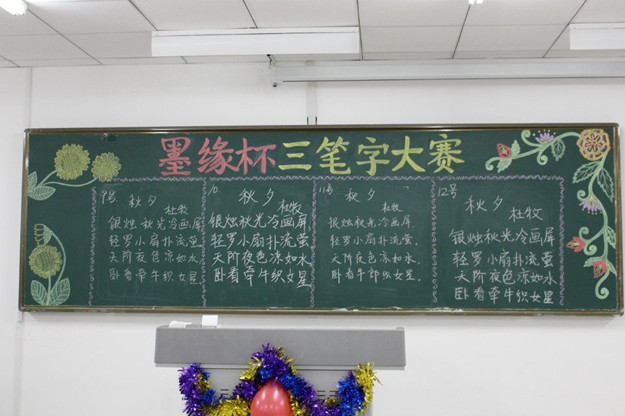 墨缘杯三笔字大赛
9号 秋夕
杜牧
银烛秋光冷画屏
轻罗小扇扑流萤
天阶夜色凉如水
卧看牵牛织女星
10 秋夕
杜牧
银烛秋光冷画屏
轻罗小扇扑流萤
天阶夜色凉如水
卧看牵牛织女星
11号 秋夕
杜牧
银烛秋光冷画屏,
轻罗小扇扑流萤。
天阶夜色凉如水,
卧看牛郎织女星。
12号
秋夕
杜牧
银烛秋光冷画屏
轻罗小扇扑流萤
天阶夜色凉如水
卧看牵牛织女星